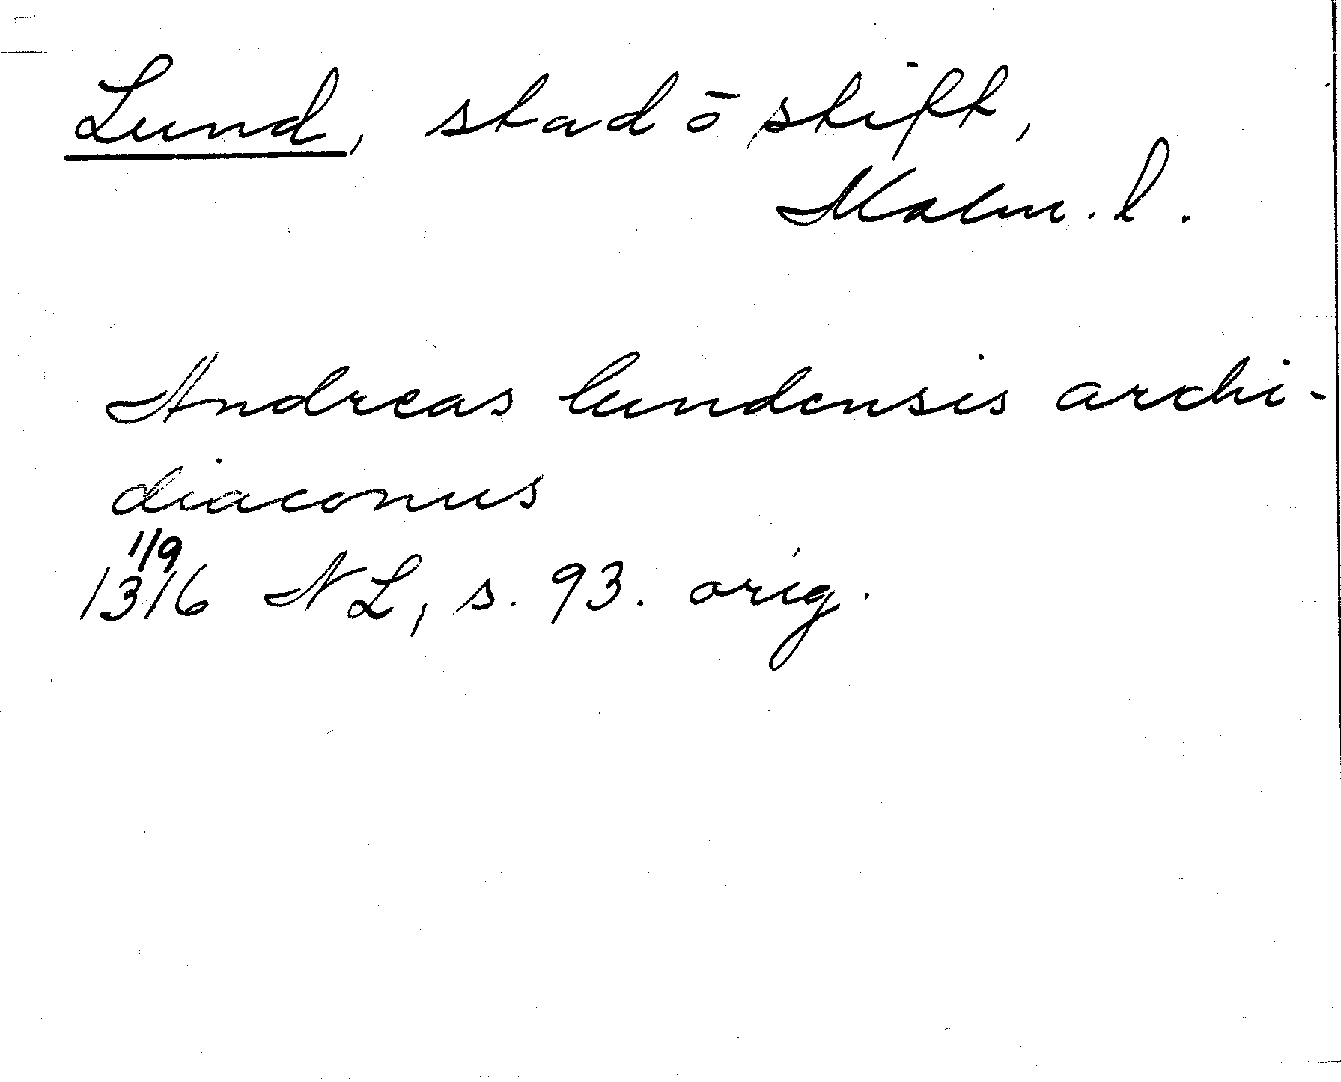 Lund, stad ō stift,
Malm. l.
Andreas lundensis archi-
diaconus
1/9
1316 NL, s. 93. orig.